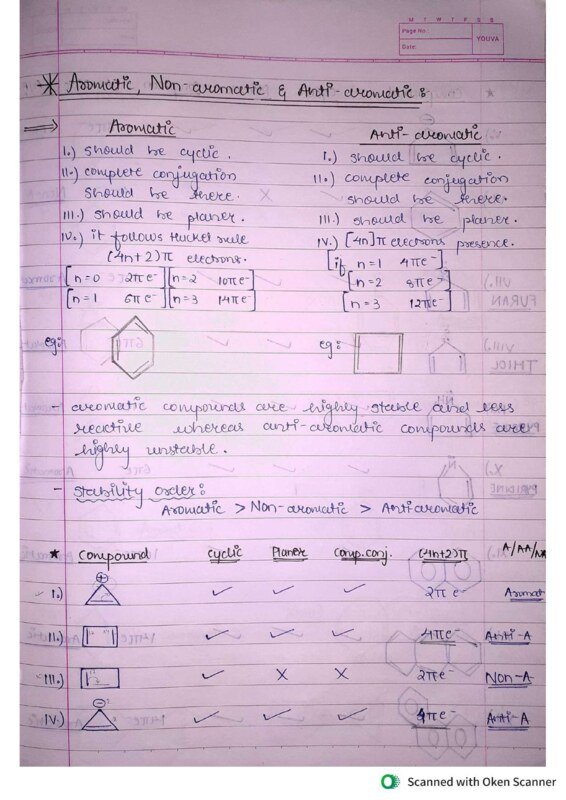 M T W T F S S
Page No.:
Date:
YOUVA
* Aromatic, Non-aromatic & Anti-aromatic :
⇒ Aromatic
I.) should be cyclic.
II.) complete conjugation
should be there.
III.) should be planer.
IV.) it follows Huckel rule
(4n+2)π electrons.
[n=0 2πe⁻] [n=2 10πe⁻]
[n=1 6πe⁻] [n=3 14πe⁻]
eg:
Anti-aromatic
I.) should be cyclic.
II.) complete conjugation
should be there.
III.) should be planer.
IV.) [4n]π electrons presence.
[if n=1 4πe⁻]
[n=2 8πe⁻]
[n=3 12πe⁻]
eg:
- aromatic compounds are highly stable and less
reactive whereas anti-aromatic compounds are
highly unstable.
- Stability order:
Aromatic > Non-aromatic > Antiaromatic
* Compound cyclic Planer Comp.conj. (4n+2)π A/AA/NA
I.) ⊕ ✓ ✓ ✓ 2π e⁻ Aromat
II.) ✓ ✓ ✓ 4πe⁻ Anti-A
III.) ✓ X X 2πe⁻ Non-A
IV.) ⊖ ✓ ✓ ✓ 4πe⁻ Anti-A
FURAN
THIOL
PYRIDINE
Scanned with Oken Scanner